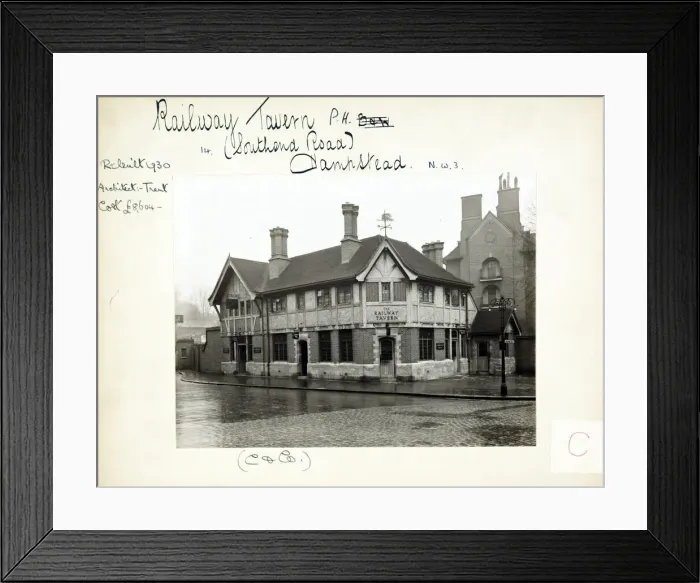 Railway Tavern P.H.
14. (Southend Road)
Hampstead. N.W.3.
Rebuilt 1930
Architect:- Trent
Cost £8604-
THE
RAILWAY
TAVERN
(C & Co.)
C